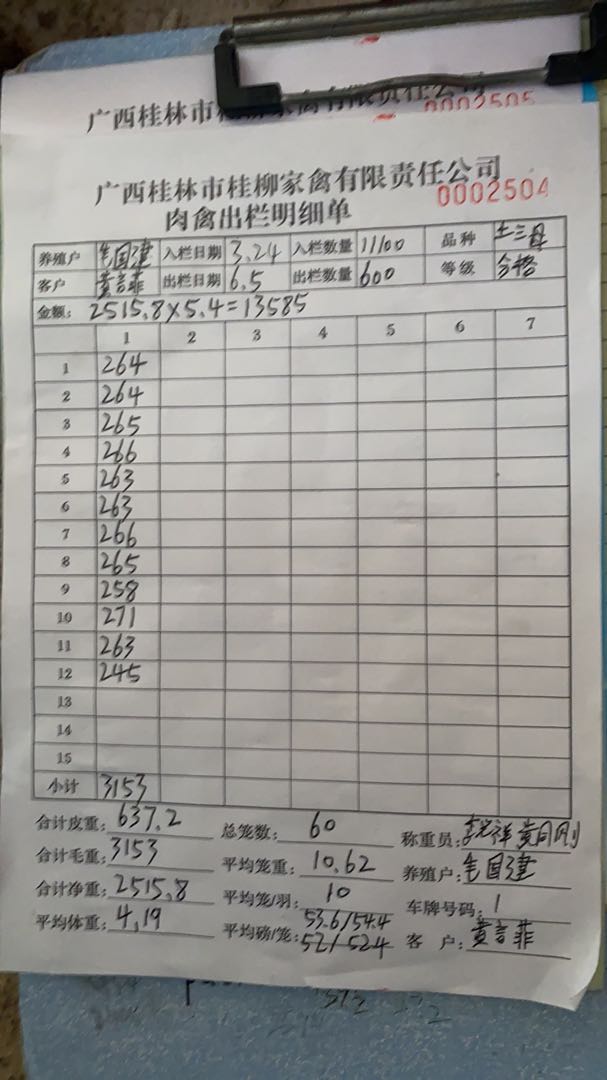 0002505
广西桂林市桂柳家禽有限责任公司
0002504
肉禽出栏明细单
养殖户 毛国建 入栏日期 3.24 入栏数量 11100 品种 土三母
客户 黄言菲 出栏日期 6.5 出栏数量 600 等级 合格
金额: 2515.8×5.4=13585
1 2 3 4 5 6 7
1 264
2 264
3 265
4 266
5 263
6 263
7 266
8 265
9 258
10 271
11 263
12 245
13
14
15
小计 3153
合计皮重: 637.2 总笼数: 60 称重员: 黄同刚
合计毛重: 3153 平均笼重: 10.62 养殖户: 毛国建
合计净重: 2515.8 平均笼/羽: 10 车牌号码: 1
平均体重: 4.19 平均磅/笼: 53.6/54.4 52/52.4 客 户: 黄言菲